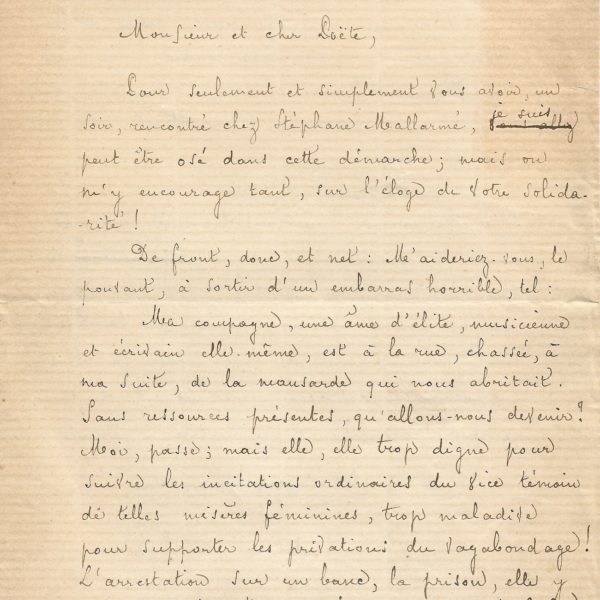 Monsieur et cher Poëte,
Pour seulement et simplement vous avoir, un
je suis
soir, rencontré chez Stéphane Mallarmé,
peut être osé dans cette démarche; mais on
m'y encourage tant, sur l'éloge de votre solida-
-rité!
De front, donc, et net: M'aideriez-vous, le
pouvant, à sortir d'un embarras horrible, tel:
Ma compagne, une âme d'élite, musicienne
et écrivain elle-même, est à la rue, chassée, à
ma suite, de la mansarde qui nous abritait.
Sans ressources présentes, qu'allons-nous devenir?
Moi, passe; mais elle, elle trop digne pour
suivre les incitations ordinaires du vice témoin
de telles misères féminines, trop maladive
pour supporter les privations du vagabondage!
L'arrestation sur un banc, la prison, elle y